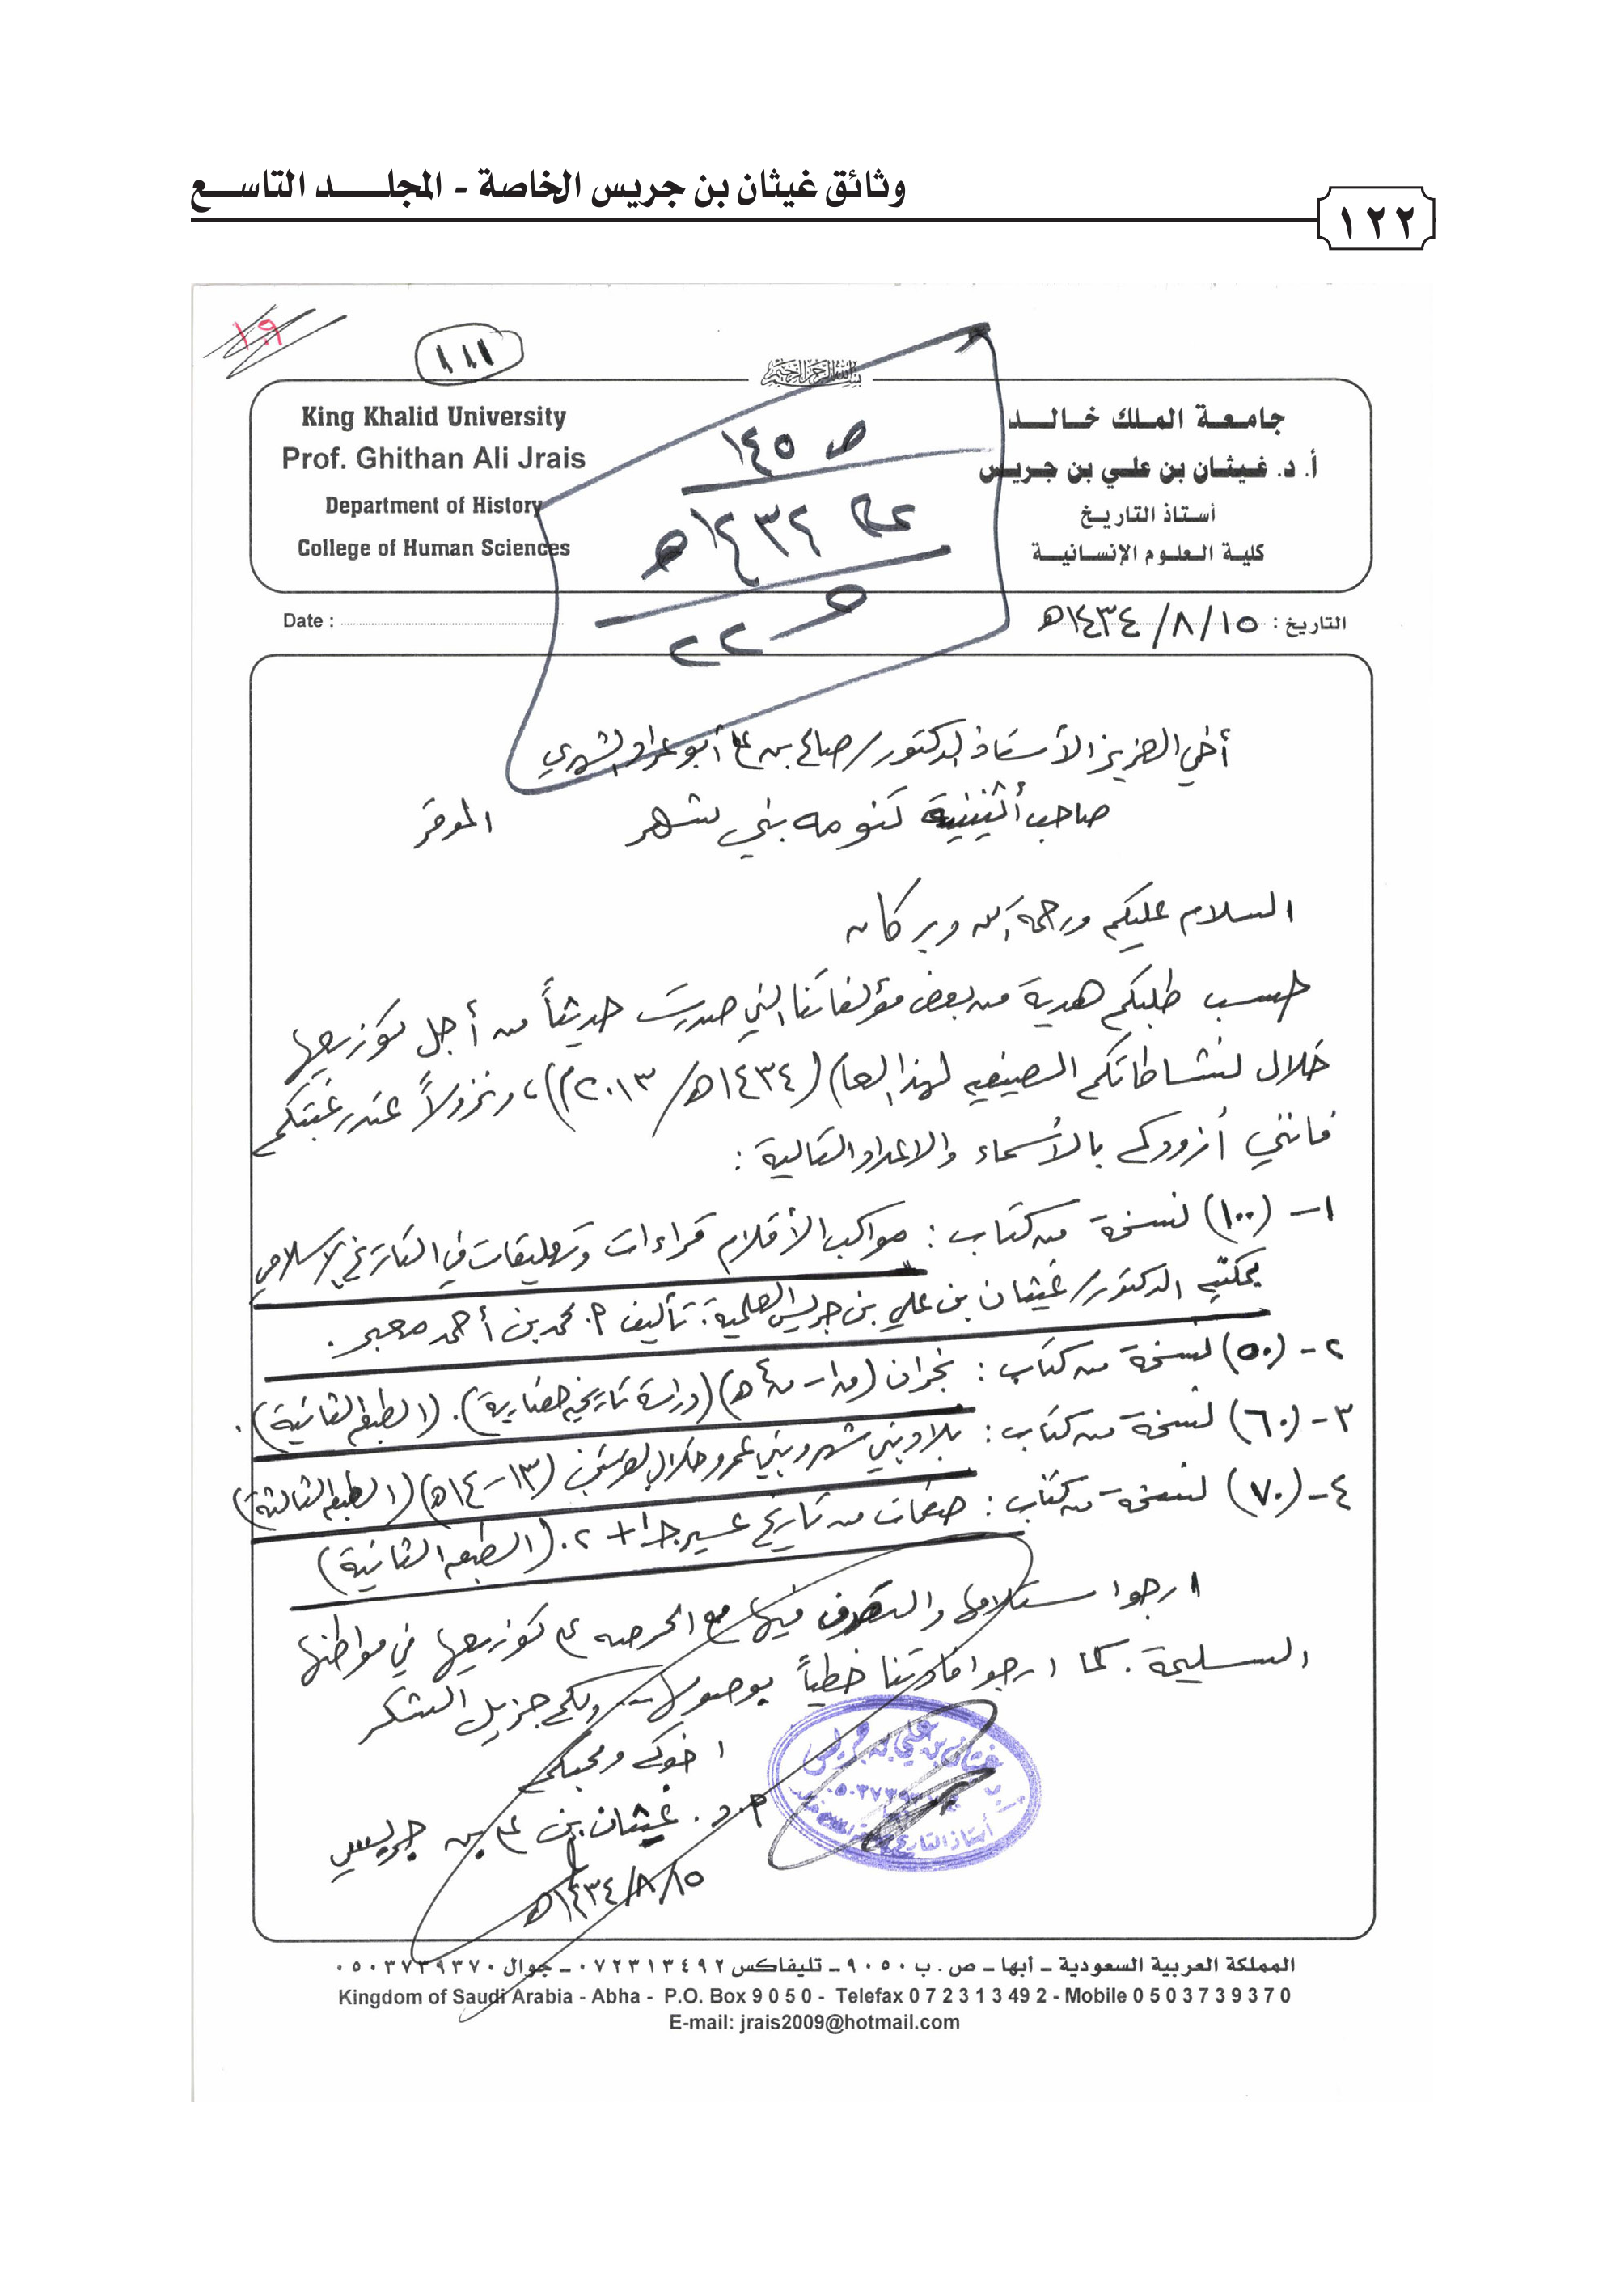 وثائق غيثان بن جريس الخاصة - المجلد التاسع
١٢٢
١٠٩
١١١
بسم الله الرحمن الرحيم
جامعة الملك خالد
أ. د. غيثان بن علي بن جريس
أستاذ التاريخ
كلية العلوم الإنسانية
King Khalid University
Prof. Ghithan Ali Jrais
Department of History
College of Human Sciences
ص ١٤٥
١٤٣٢هـ
٢٢
التاريخ : ١٥/٨/١٤٣٤هـ
Date :
أخي العزيز الأستاذ الدكتور/ صالح بن علي أبو عراد الشهري
صاحب أثنينية تنومه بني شهر الموقر
السلام عليكم ورحمة الله وبركاته
حسب طلبكم هدية من بعض مؤلفاتنا التي صدرت حديثاً من أجل توزيعها
خلال نشاطاتكم الصيفيه لهذا العام (١٤٣٤هـ/ ٢٠١٣م)، ونزولاً عند رغبتكم
فانني أزودكم بالأسماء والاعداد التالية :
١- (١٠٠) نسخة من كتاب : مواكب الأقلام قراءات وتعليقات في التاريخ الإسلامي
بمكتبه الدكتور/ غيثان بن علي بن جريس العلمية. تأليف م. محمد بن أحمد معبر.
٢- (٥٠) نسخة من كتاب : نجران (ق١- ق٤هـ) (دراسة تاريخيه حضارية). (الطبعه الثانية).
٣- (٦٠) نسخة من كتاب : بلاد بني شهر وبني عمرو خلال القرنين (١٣-١٤هـ) (الطبعه الثالثة)
٤- (٧٠) نسخة من كتاب : صفحات من تاريخ عسير ج١+٢. (الطبعه الثانية)
ارجوا ستلامها والتصرف فيها مع الحرص على توزيعها في مواطنها
السليمة. كما ارجوا افادتنا خطياً بوصولها -- ولكم جزيل الشكر
اخوكم ومحبكم
أ. د. غيثان بن علي بن جريس
١٥/٨/١٤٣٤هـ
غيثان بن علي بن جريس
المملكة العربية السعودية ـ أبها ـ ص . ب ٩٠٥٠ ـ تليفاكس ٠٧٢٣١٣٤٩٢ ـ جوال ٠٥٠٣٧٣٩٣٧٠
Kingdom of Saudi Arabia - Abha - P.O. Box 9 0 5 0 - Telefax 0 7 2 3 1 3 49 2 - Mobile 0 5 0 3 7 3 9 3 7 0
E-mail: jrais2009@hotmail.com